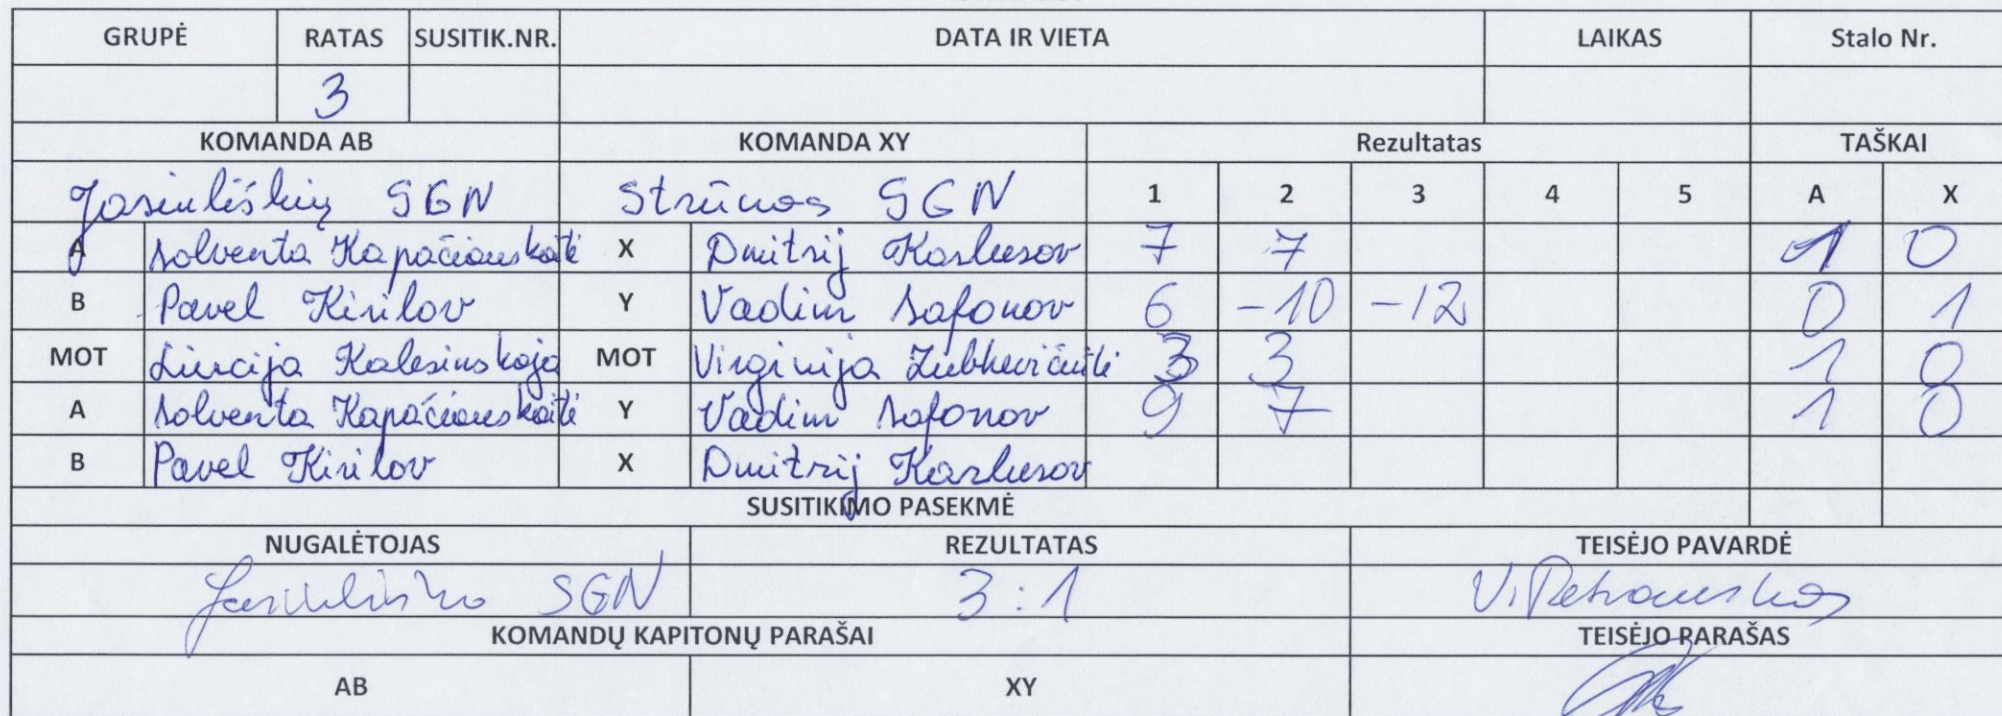 GRUPĖ RATAS SUSITIK.NR. DATA IR VIETA LAIKAS Stalo Nr.
3
KOMANDA AB KOMANDA XY Rezultatas TAŠKAI
SGN Strūnos SGN 1 2 3 4 5 A X
A Solventa Kapačiauskaitė X Dmitrij 7 7 1 0
B Pavel Kirilov Y Vadim Safonov 6 -10 -12 0 1
MOT Liucija Kalesinskaja MOT Virginija 3 3 1 0
A Solventa Kapačiauskaitė Y Vadim Safonov 9 7 1 0
B Pavel Kirilov X Dmitrij
SUSITIKIMO PASEKMĖ
NUGALĖTOJAS REZULTATAS TEISĖJO PAVARDĖ
SGN 3:1 V. Petrauskas
KOMANDŲ KAPITONŲ PARAŠAI TEISĖJO PARAŠAS
AB XY